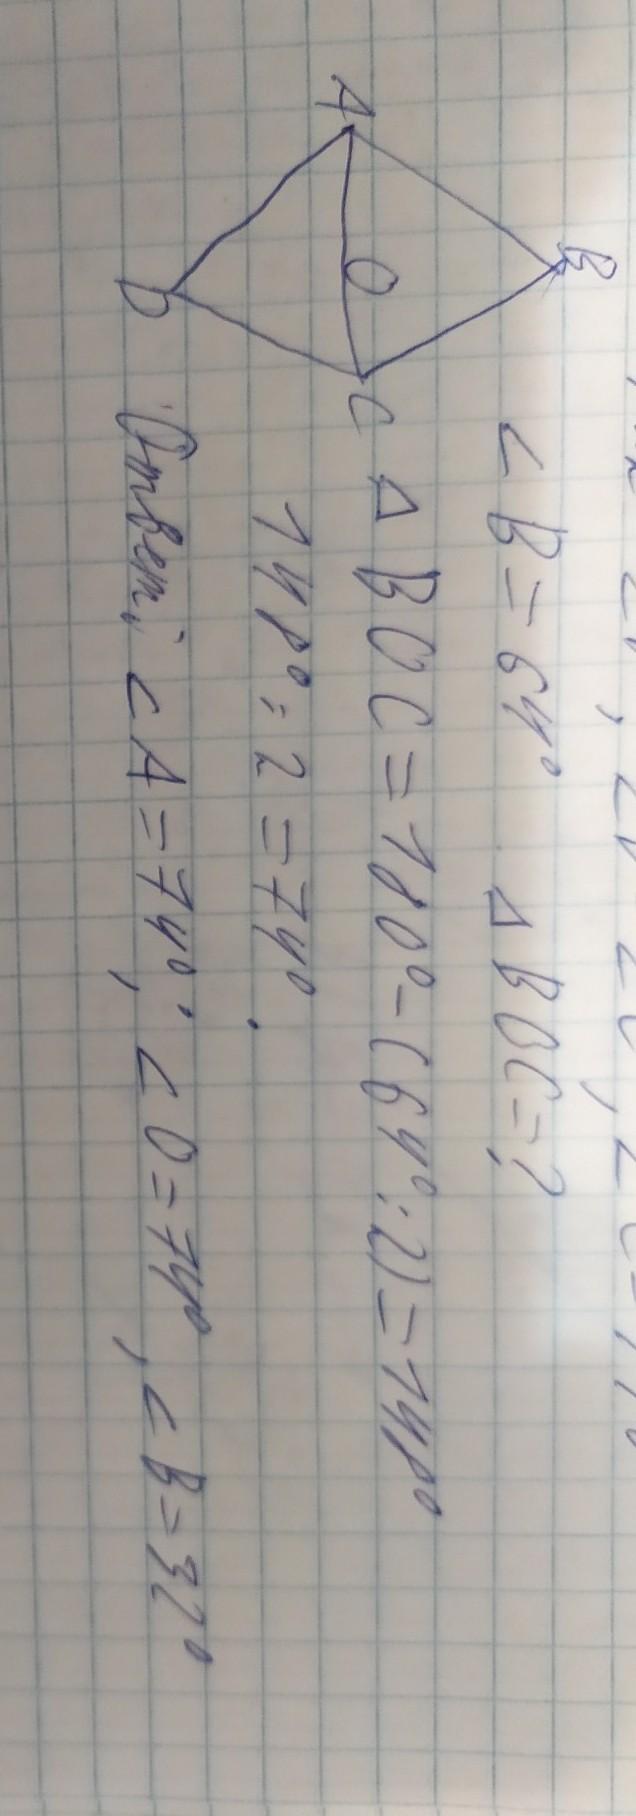 B
A
O
C
D
< B = 64° Δ BOC = ?
Δ BOC = 180° - (64° : 2) = 148°
148° : 2 = 74°.
Ответ: < A = 74°; < O = 74°, < B = 32°